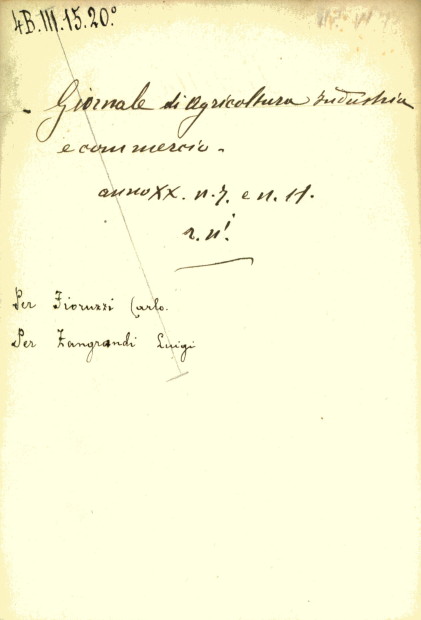 4B.III.15.20.°
Giornale di agricoltura industria
e commercio.
anno XX. n. 7. e n. 11.
2. n.i
Per Fioruzzi Carlo.
Per Zangrandi Luigi